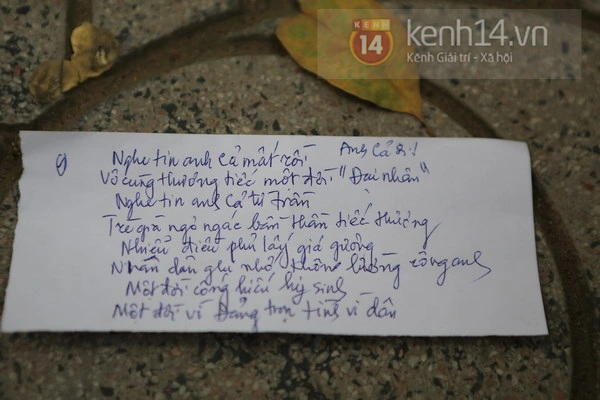 KENH 14
kenh14.vn
Kênh Giải trí - Xã hội
Nghe tin anh cả mất rồi Anh Cả ơi!
Vô cùng thương tiếc một đời "Đại nhân"
Nghe tin anh cả từ trần
Trẻ già ngơ ngác bần thần tiếc thương
Nhiễu điều phủ lấy giá gương
Nhân dân ghi nhớ không lường công anh
Một đời cống hiến hy sinh
Một đời vì Đảng trọn tình vì dân